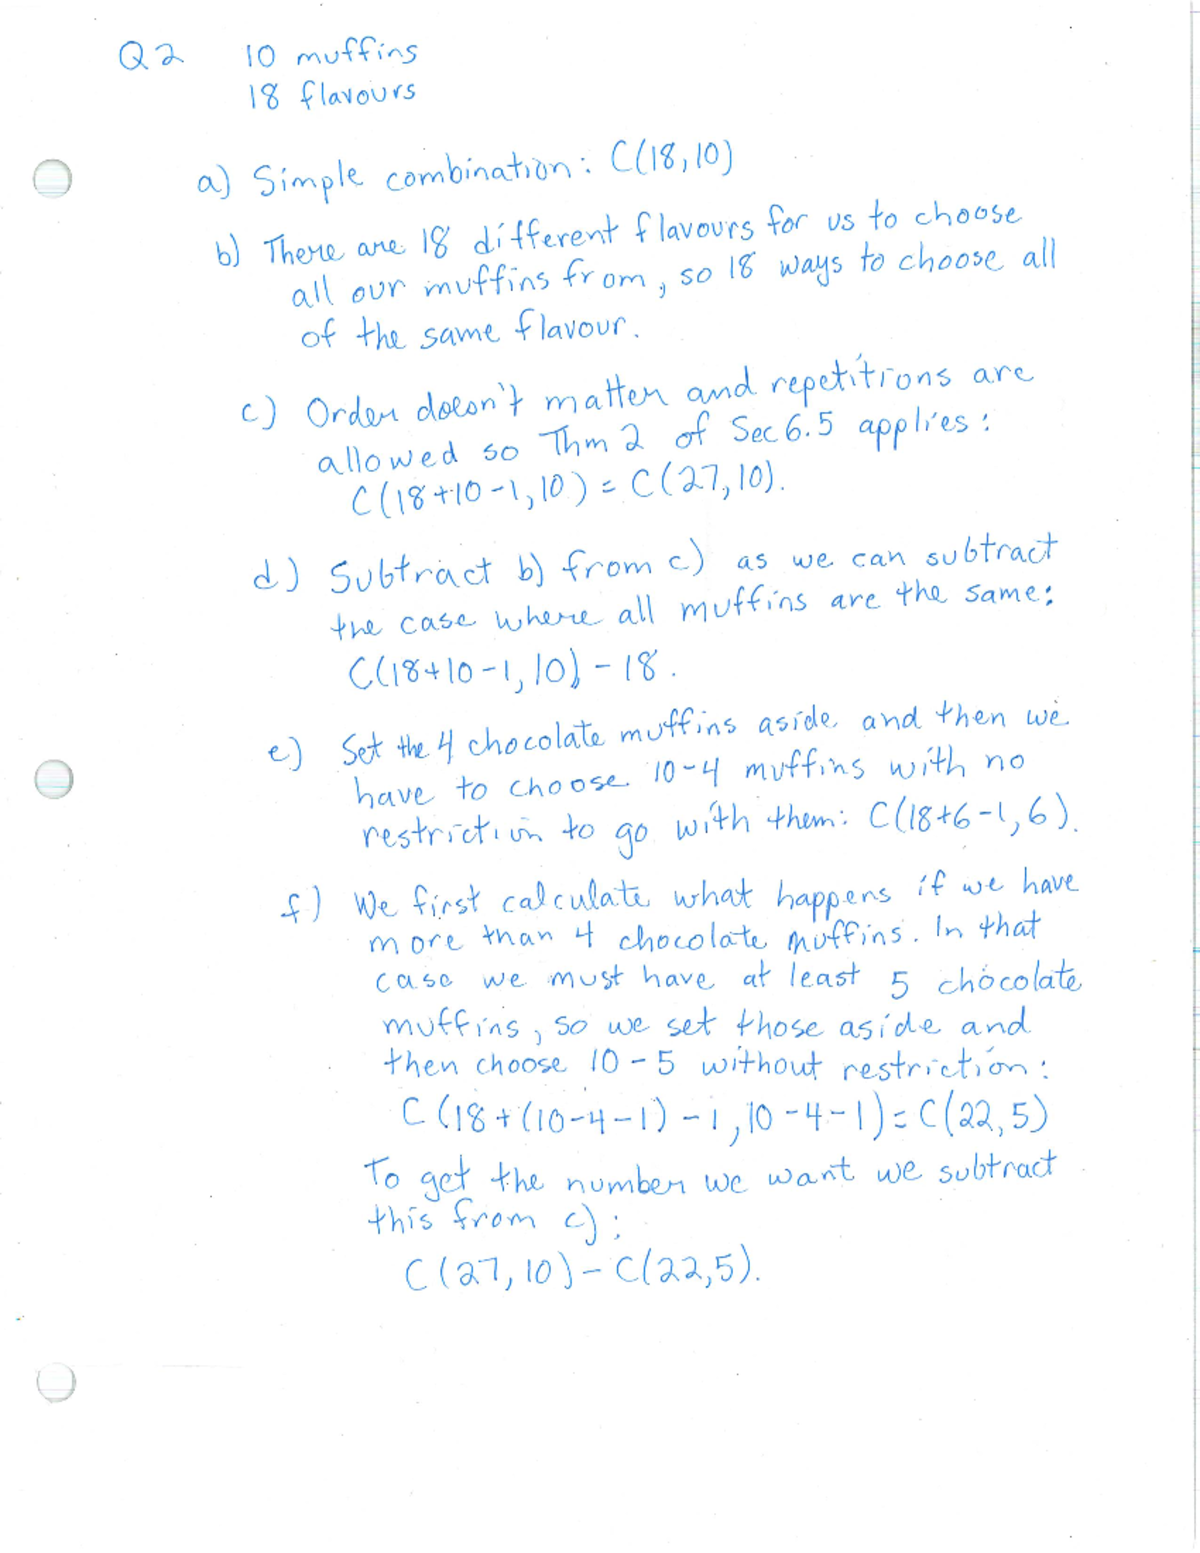 Q2 10 muffins
18 flavours
a) Simple combination: C(18,10)
b) There are 18 different flavours for us to choose
all our muffins from, so 18 ways to choose all
of the same flavour.
c) Order doesn't matter and repetitions are
allowed so Thm 2 of Sec 6.5 applies:
C(18+10-1,10) = C(27,10).
d) Subtract b) from c) as we can subtract
the case where all muffins are the same:
C(18+10-1,10) - 18.
e) Set the 4 chocolate muffins aside and then we
have to choose 10-4 muffins with no
restriction to go with them: C(18+6-1,6).
f) We first calculate what happens if we have
more than 4 chocolate muffins. In that
case we must have at least 5 chocolate
muffins, so we set those aside and
then choose 10-5 without restriction:
C(18+(10-4-1)-1,10-4-1) = C(22,5)
To get the number we want we subtract
this from c):
C(27,10) - C(22,5).